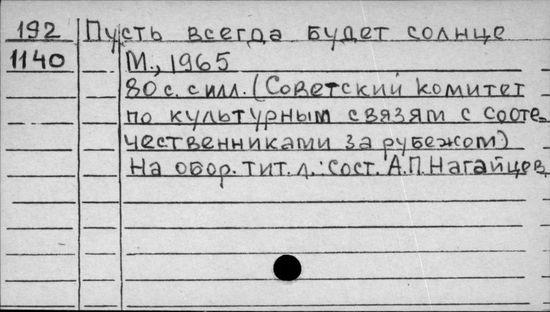 192 Пусть всегда будет солнце
1140 М., 1965
80 с. с илл. (Советский комитет
по культурным связям с сооте-
чественниками за рубежом)
На обор. тит. л.: сост. А.П. Нагайцев